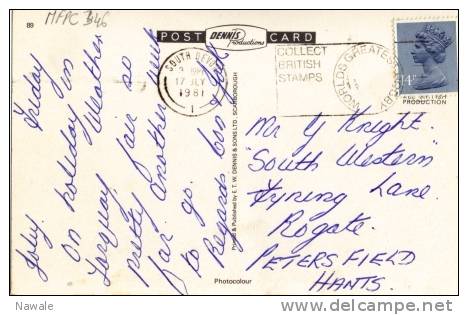 MFPC 346
89
POST CARD
DENNIS
Productions
SOUTH DEVON
17 JLY
1981
1
COLLECT
BRITISH
STAMPS
WORLDS GREATEST HOBBY
14P
PRODUCTION
Friday
On holiday in
Torquay. Weather
pretty fair so
far. Another week
to go.
Regards
Mr Y Knight.
"South Western"
Fyning Lane
Rogate
PETERSFIELD
HANTS.
Printed & Published by E. T. W. DENNIS & SONS LTD. SCARBOROUGH
Photocolour
Nawale
http://www.delcampe.net